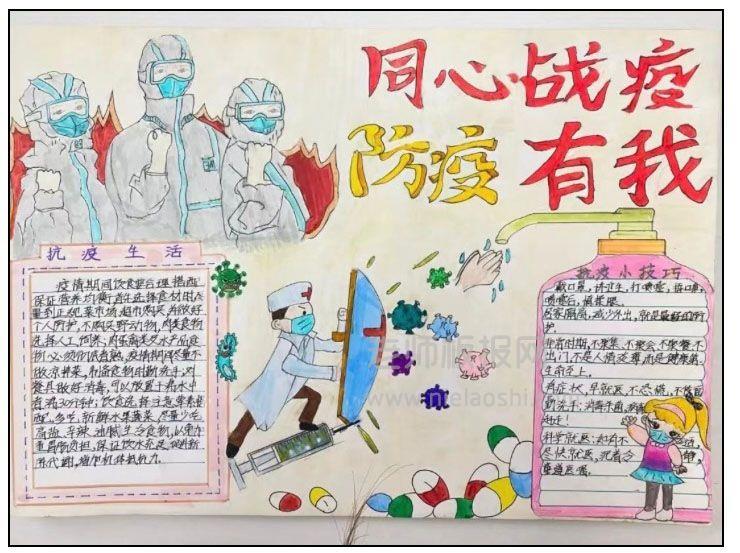 同心战疫
防疫有我
抗疫生活
疫情期间饮食要合理搭配
保证营养均衡首先选择食材时尽
量到正规菜市场、超市购买并做好
个人防护,不购买野动物,肉类食物
选择人工饲养,肉蛋禽类及水产品食
物必须彻底煮熟,疫情期间尽量不
做凉拌菜,制备食物时勤洗手,对
餐具做好消毒,可以放置于沸水中
煮沸30分钟,饮食选择注意荤素搭
配,多吃新鲜水果蔬菜,尽量少吃
高盐、辛辣、油腻生冷食物,以免加
重胃肠负担,保证饮水充足,促进新
陈代谢,增加机体抵抗力。
抗疫小技巧
戴口罩,讲卫生,打喷嚏,捂口鼻,
喷嚏后,慎揉眼。
居家隔离,减少外出,就是最好的防
护
非常时期,不聚集、不聚会、不聚餐、不
出门,不是人情淡薄,而是健康第一,
生命至上。
有症状,早就医,不恐慌,不
勤洗手
赶走!
科学就医
尽快就医
老师板报网
melaoshi.com